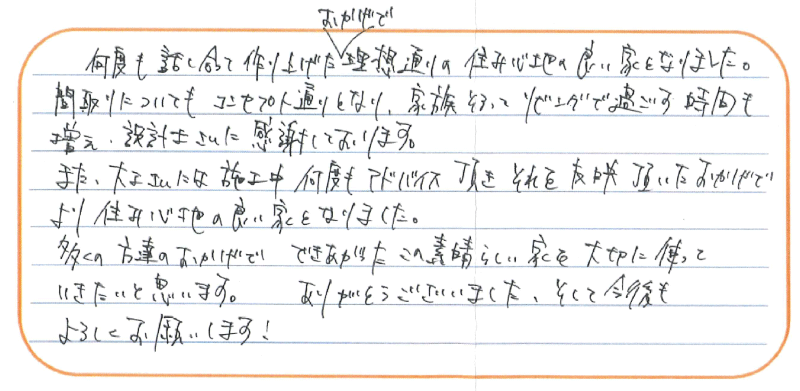 おかげで
何度も話し合って作り上げた理想通りの住み心地の良い家となりました。
間取りについてもコンセプト通りとなり、家族そろってリビングで過ごす時間も
増え、設計士さんに感謝しております。
また、大工さんには施工中何度もアドバイス頂きそれを反映頂いたおかげで
より住み心地の良い家となりました。
多くの方達のおかげでできあがったこの素晴らしい家を大切に使って
いきたいと思います。 ありがとうございました、そして今後も
よろしくお願いします!